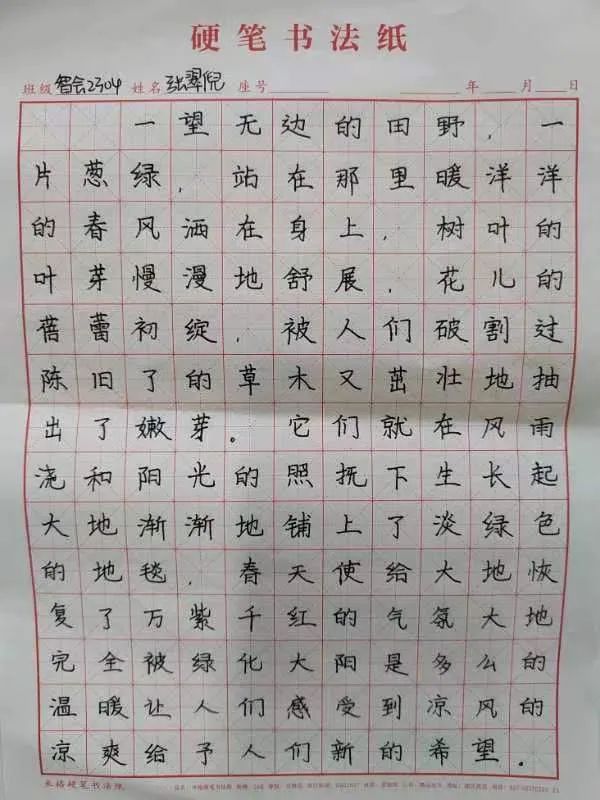 硬笔书法纸
班级 智会2304 姓名 张翠倪 座号 年 月 日
一望无边的田野，一
片葱绿，站在那里暖洋洋
的春风洒在身上，树叶的
叶芽慢漫地舒展，花儿的
蓓蕾初绽，被人们破割过
陈旧了的草木又茁壮地抽
出了嫩芽。它们就在风雨
浇和阳光的照抚下生长起
大地渐渐地铺上了淡绿色
的地毯，春天使给大地恢
复了万紫千红的气氛大地
完全被绿化大阳是多么的
温暖让人们感受到凉风的
凉爽给予人们新的希望。
米格硬笔书法纸